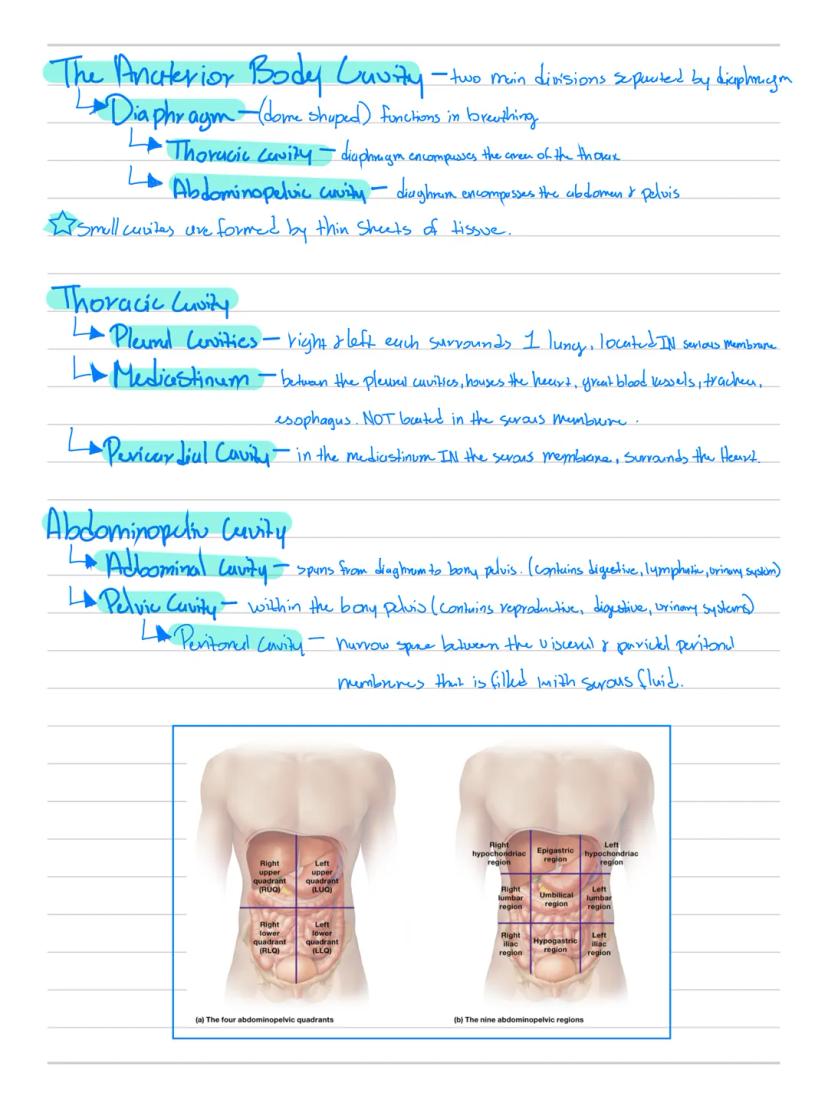 The Anaterior Body Cavity – two main divisions separated by diaphragm
Diaphragm – (dome shaped) functions in breathing
Thoracic cavity – diaphragm encompasses the area of the thorax
Abdominopelvic cavity – diaghram encompasses the abdomen & pelvis
Small cavites are formed by thin sheets of tissue.
Thoracic Cavity
Pleural Cavities – right & left each surrounds 1 lung, located IN serious membrane
Mediastinum – between the pleural cavities, houses the heart, great blood vessels, trachea,
esophagus. NOT located in the serous membrane.
Pericardial Cavity – in the mediastinum IN the serous membrane, surrounds the Heart.
Abdominopelvic Cavity
Adbominal Cavity – spans from diaghram to bony pelvis. (contains digestive, lymphatic, urinary system)
Pelvic Cavity – within the bony pelvis (contains reproductive, digestive, urinary systems)
Peritoneal Cavity – narrow space between the visceral & parietal peritoneal
membranes that is filled with serous fluid.
Right upper quadrant (RUQ)
Left upper quadrant (LUQ)
Right lower quadrant (RLQ)
Left lower quadrant (LLQ)
(a) The four abdominopelvic quadrants
Right hypochondriac region
Epigastric region
Left hypochondriac region
Right lumbar region
Umbilical region
Left lumbar region
Right iliac region
Hypogastric region
Left iliac region
(b) The nine abdominopelvic regions